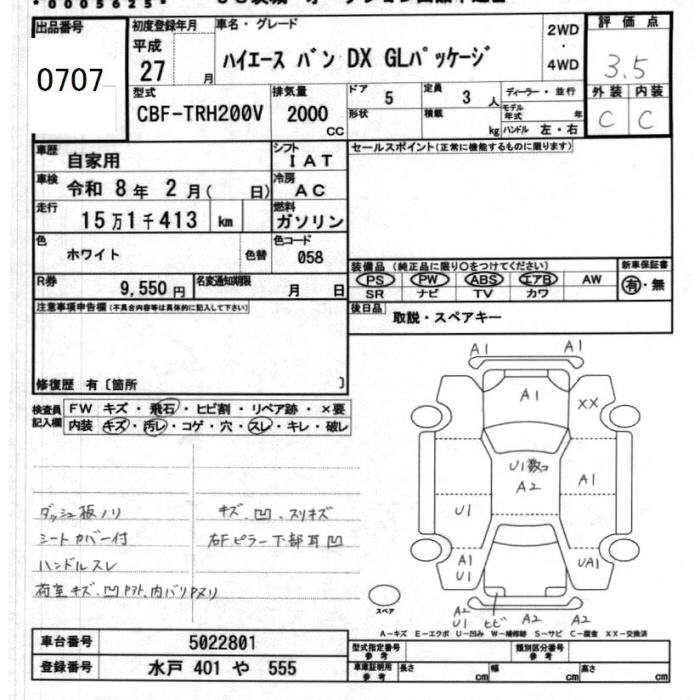 *0005625*
出品番号
0707
初度登録年月
平成
27 月
車名・グレード
ハイエース バン DX GLパッケージ
2WD
・
4WD
評価点
3.5
型式
CBF-TRH200V
排気量
2000
CC
ドア
5
形状
定員
3 人
積載
kg
ディーラー・並行
モデル年式 年
ハンドル 左・右
外装 内装
C C
車歴
自家用
シフト
IAT
車検
令和 8年 2月( 日)
冷房
AC
走行
15万1千413 km
燃料
ガソリン
色
ホワイト
色替
色コード
058
R券
9,550円
名変通知期限
月 日
セールスポイント(正常に機能するものに限ります)
装備品 (純正品に限り○をつけてください)
PS PW ABS エアB AW
SR ナビ TV カワ
新車保証書
有・無
後日品
取説・スペアキー
注意事項申告欄(不具合内容等は具体的に記入して下さい)
修復歴 有〔箇所 〕
検査員記入欄
FW キズ・飛石・ヒビ割・リペア跡・×要
内装 キズ・汚レ・コゲ・穴・スレ・キレ・破レ
ダッシュ板ノリ
シートカバー付
ハンドルスレ
荷室キズ、凹
キズ、凹、スリキズ
右Fピラー下部耳凹
A1 A1
A1
XX
U1数コ
A2
A1
U1
A1
U1
UA1
A2
U1
ヒビ
A2
A2
スペア
A-キズ E-エクボ U-凹み W-補修跡 S-サビ C-腐食 XX-交換済
車台番号
5022801
登録番号
水戸 401 や 555
型式指定番号
参考
類別区分番号
参考
車庫証明用
参考
長さ cm
幅 cm
高さ cm